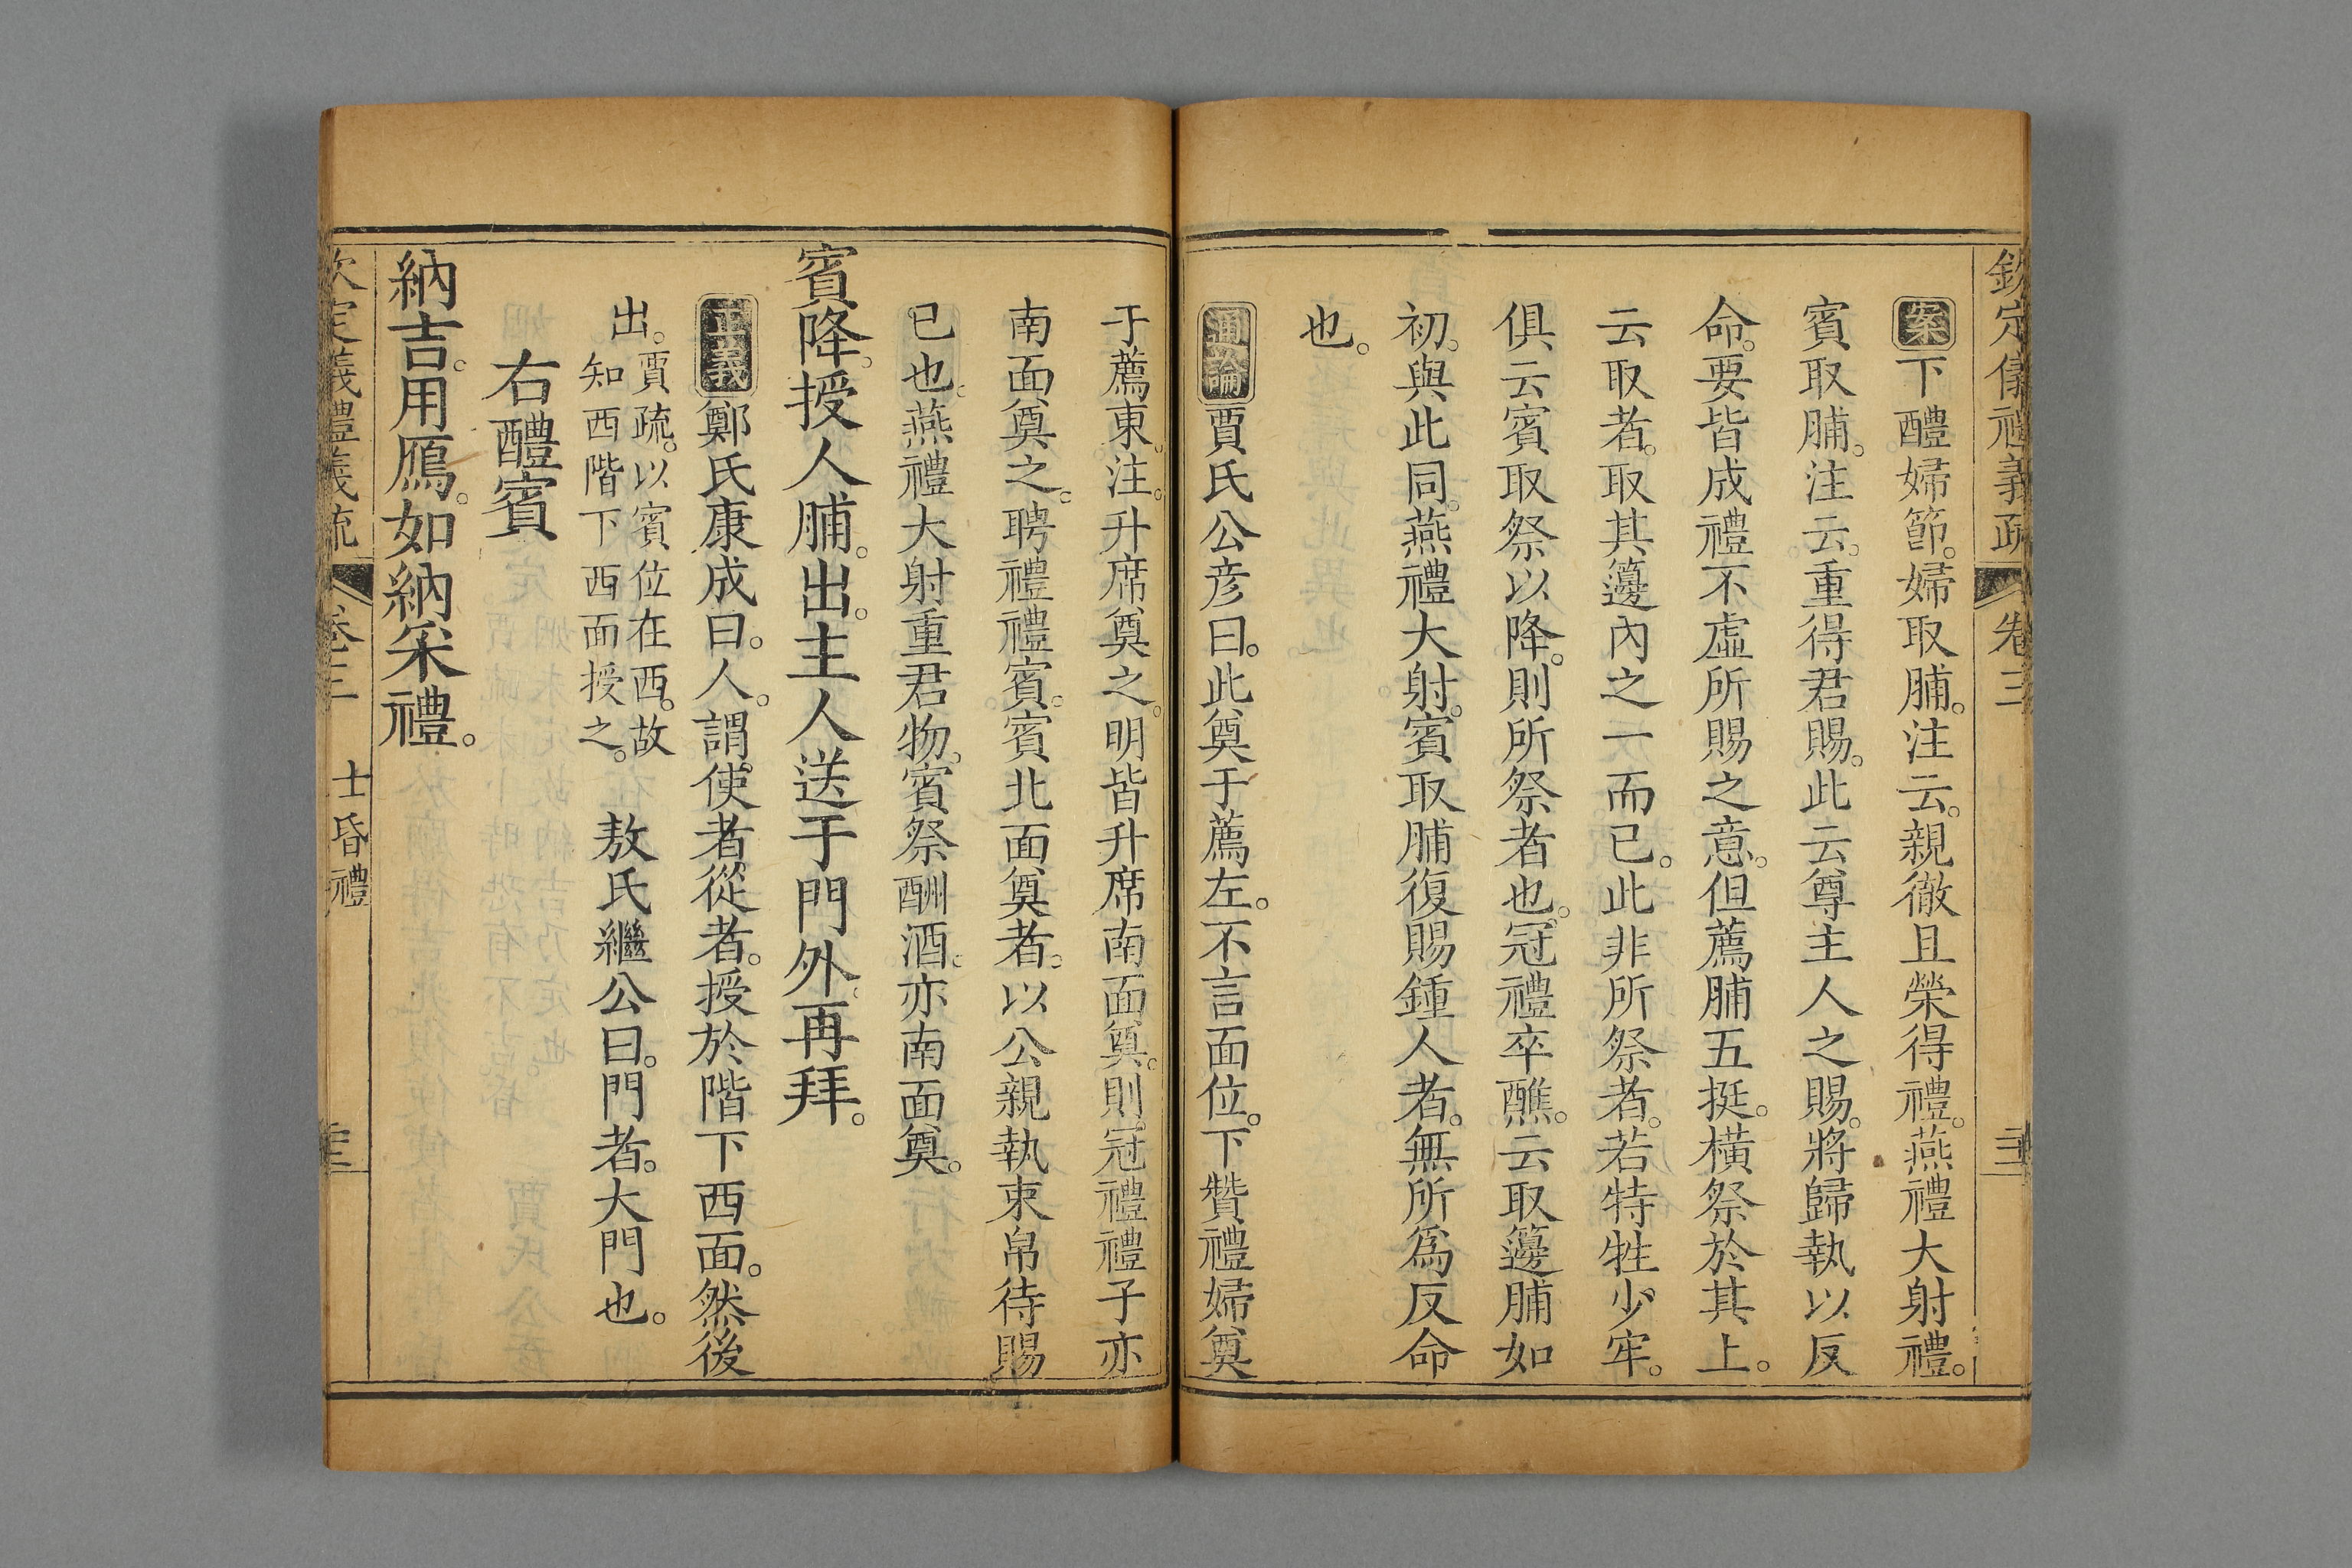 欽定儀禮義疏 卷三 三二
案下醴婦節。婦取脯。注云。親徹且榮得禮。燕禮大射禮。
賓取脯。注云。重得君賜。此云尊主人之賜。將歸執以反
命。要皆成禮不虛所賜之意。但薦脯五挺。橫祭於其上。
云取者。取其籩內之一而已。此非所祭者。若特牲少牢。
俱云賓取祭以降。則所祭者也。冠禮卒醮。云取籩脯如
初。與此同。燕禮大射。賓取脯復賜鍾人者。無所爲反命
也。
通論賈氏公彦曰。此奠于薦左。不言面位。下贊禮婦奠
于薦東。注。升席奠之。明皆升席南面奠。則冠禮禮子亦
南面奠之。聘禮禮賓。賓北面奠者。以公親執束帛待賜
已也。燕禮大射重君物。賓祭酬酒。亦南面奠。
賓降。授人脯。出。主人送于門外。再拜。
正義鄭氏康成曰。人。謂使者從者。授於階下西面。然後
出。賈疏。以賓位在西。故
知西階下西面授之。 敖氏繼公曰。門者。大門也。
右醴賓
納吉。用鴈。如納采禮。
欽定儀禮義疏 卷三 士昏禮